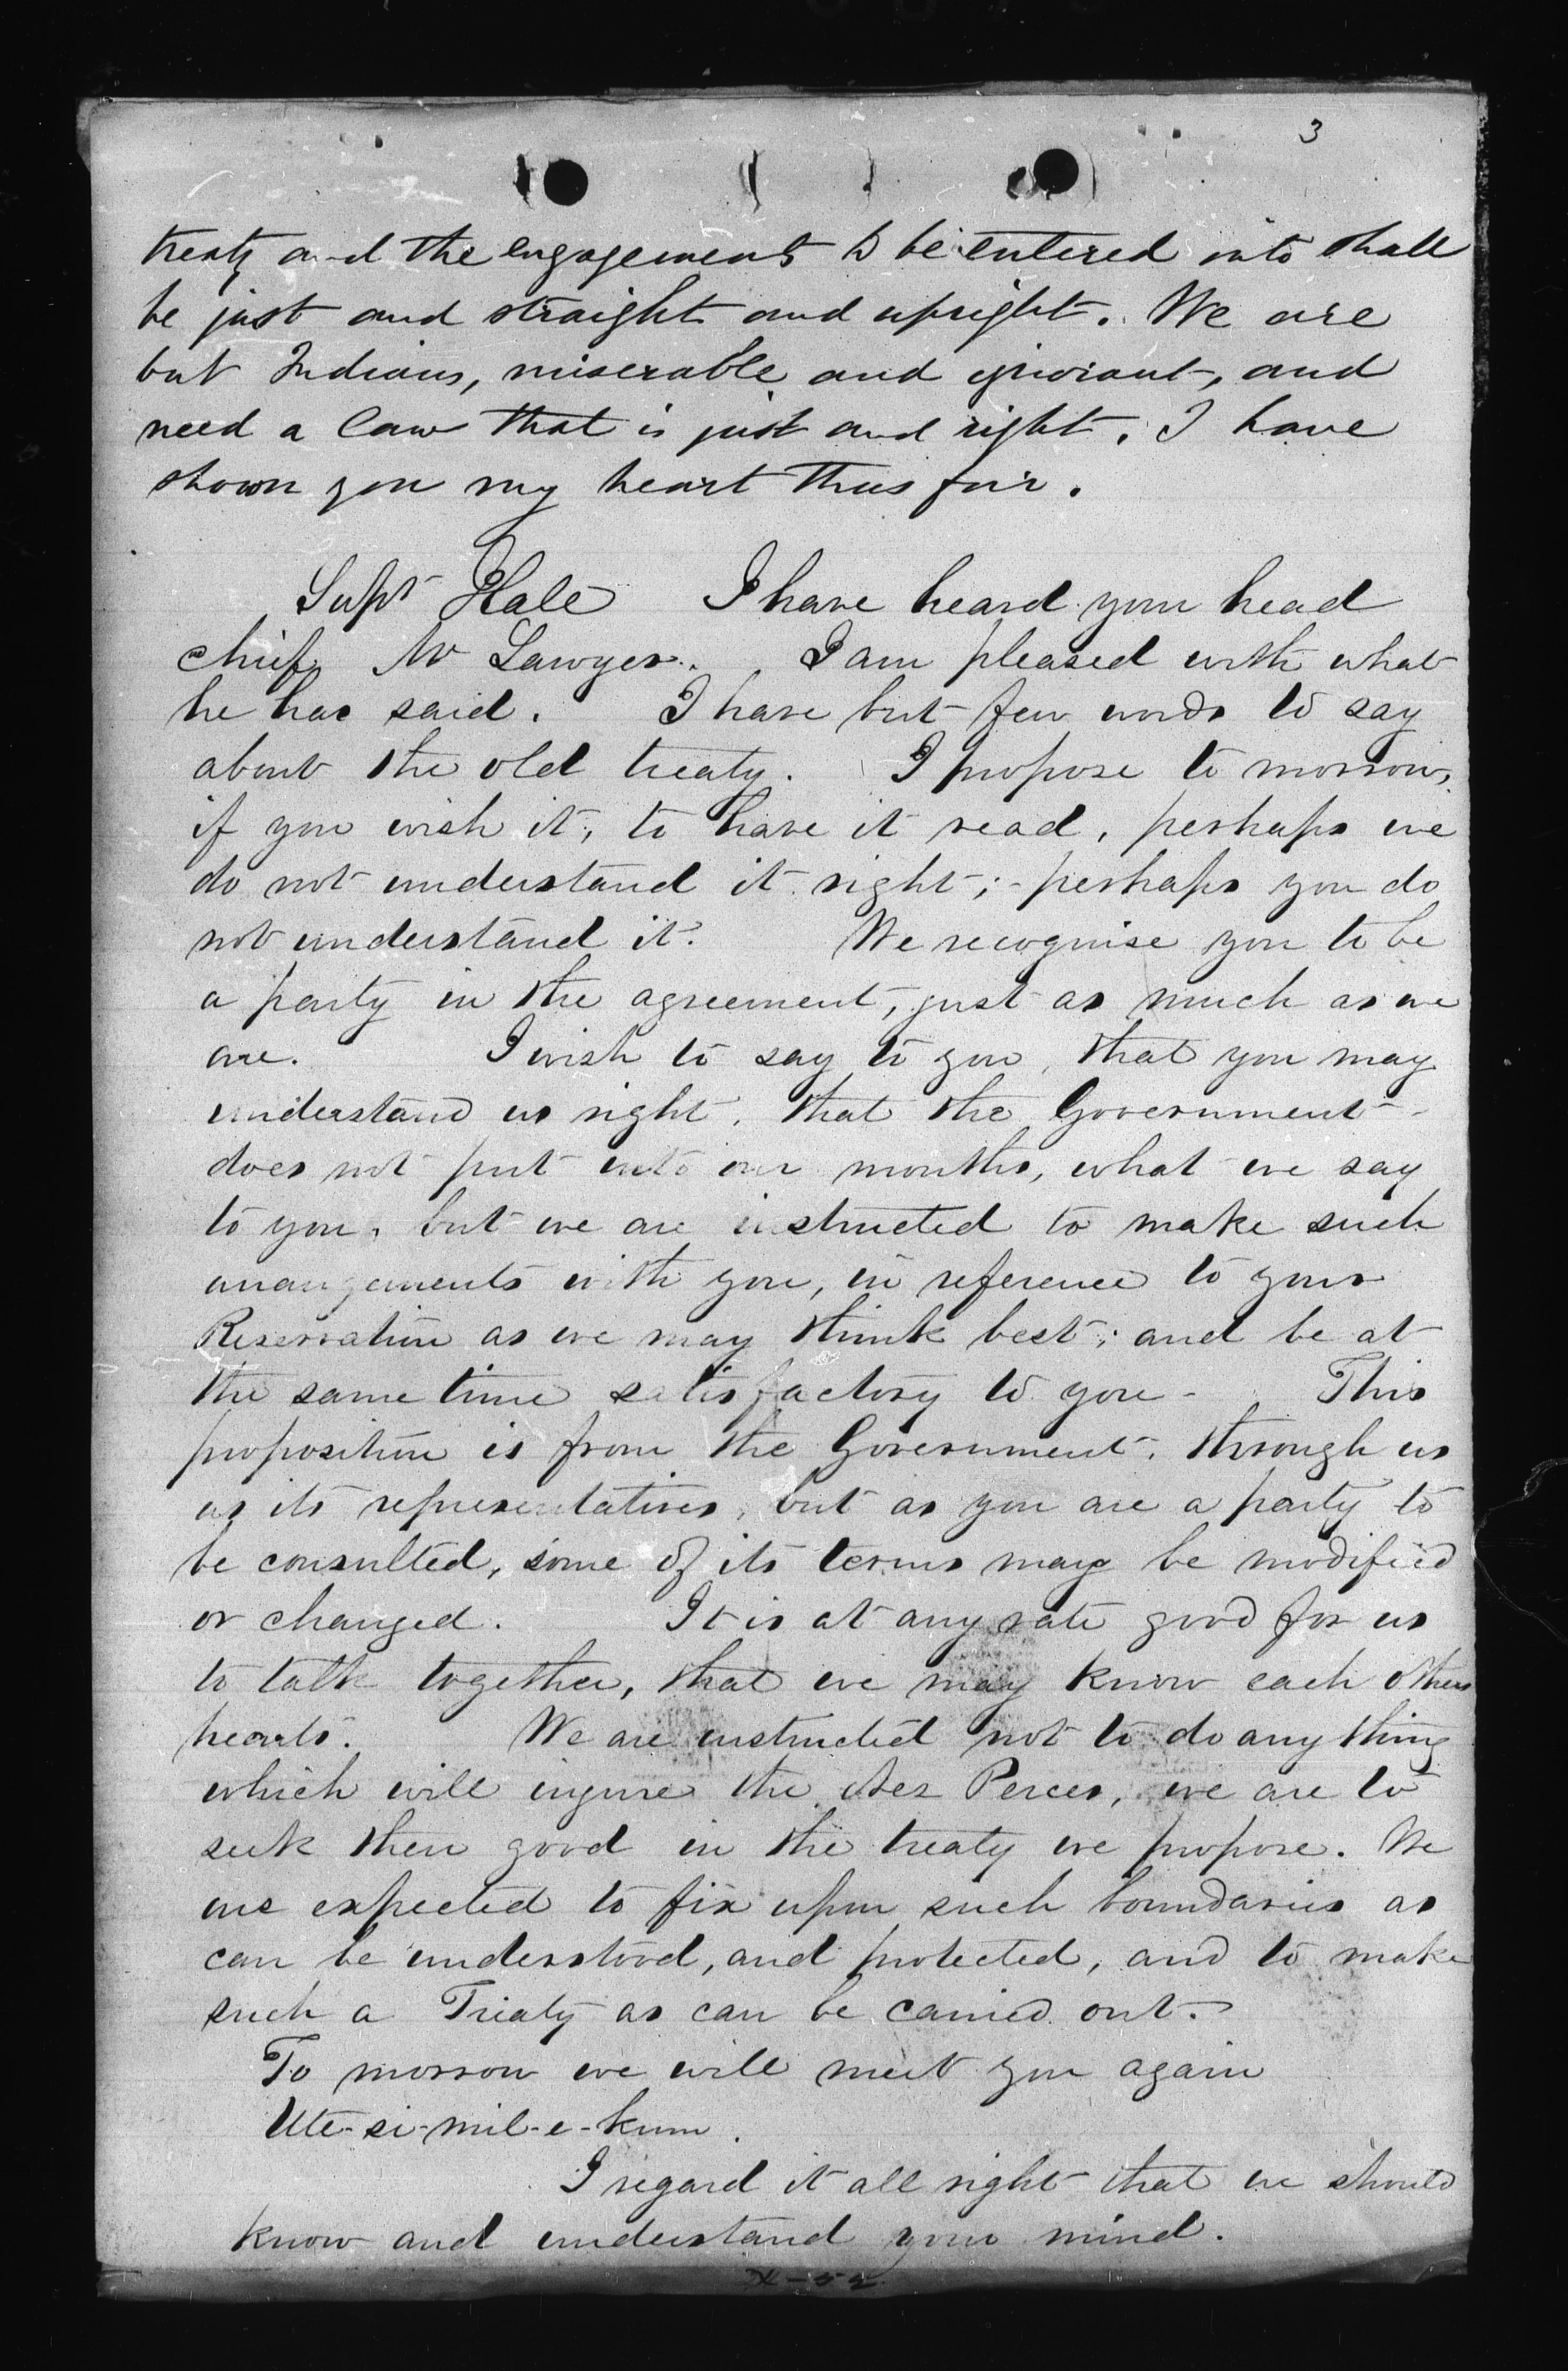 3
treaty and the engagements to be entered into shall
be just and straight and upright. We are
but Indians, miserable and ignorant, and
need a law that is just and right. I have
shown you my heart thus far.
Supt Hale I have heard your head
chief Mr Lawyer. I am pleased with what
he has said. I have but few words to say
about the old treaty. I propose to morrow,
if you wish it, to have it read, perhaps we
do not understand it right; - perhaps you do
not understand it. We recognise you to be
a party in the agreement, just as much as we
are. I wish to say to you, that you may
understand us right, that the Government
does not put into our mouths, what we say
to you, but we are instructed to make such
arrangements with you, in reference to your
Reservation as we may think best; and be at
the same time satisfactory to you - This
proposition is from the Government, through us
as its representatives, but as you are a party to
be consulted, some of its terms may be modified
or changed. It is at any rate good for us
to talk together, that we may know each others
hearts. We are instructed not to do any thing
which will injure the Nez Perces, we are to
seek their good in the treaty we propose. We
are expected to fix upon such boundaries as
can be understood, and protected, and to make
such a Treaty as can be carried out.
To morrow we will meet you again
Ute-si-mil-e-kum.
I regard it all right that we should
know and understand your mind.